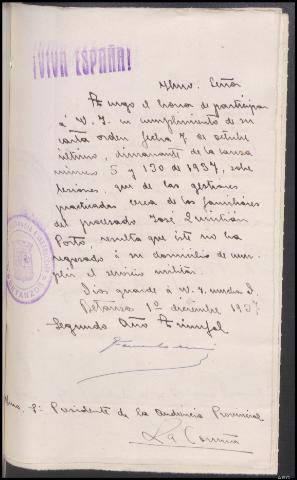 ¡VIVA ESPAÑA!
Iltmo. Señor
Tengo el honor de participar
á V. I. en cumplimiento de su
carta orden fecha 7 de octubre
último, dimanante de la causa
número 5 y 130 de 1937, sobre
lesiones, que de las gestiones
practicadas cerca de los familiares
del procesado José Quintián
Porto, resulta que éste no ha
regresado á su domicilio de cum-
plir el servicio militar.
Dios guarde á V. I. muchos A.
Betanzos 1º diciembre 1937
Segundo Año Triunfal
Iltmo. Sr. Presidente de la Audiencia Provincial
La Coruña